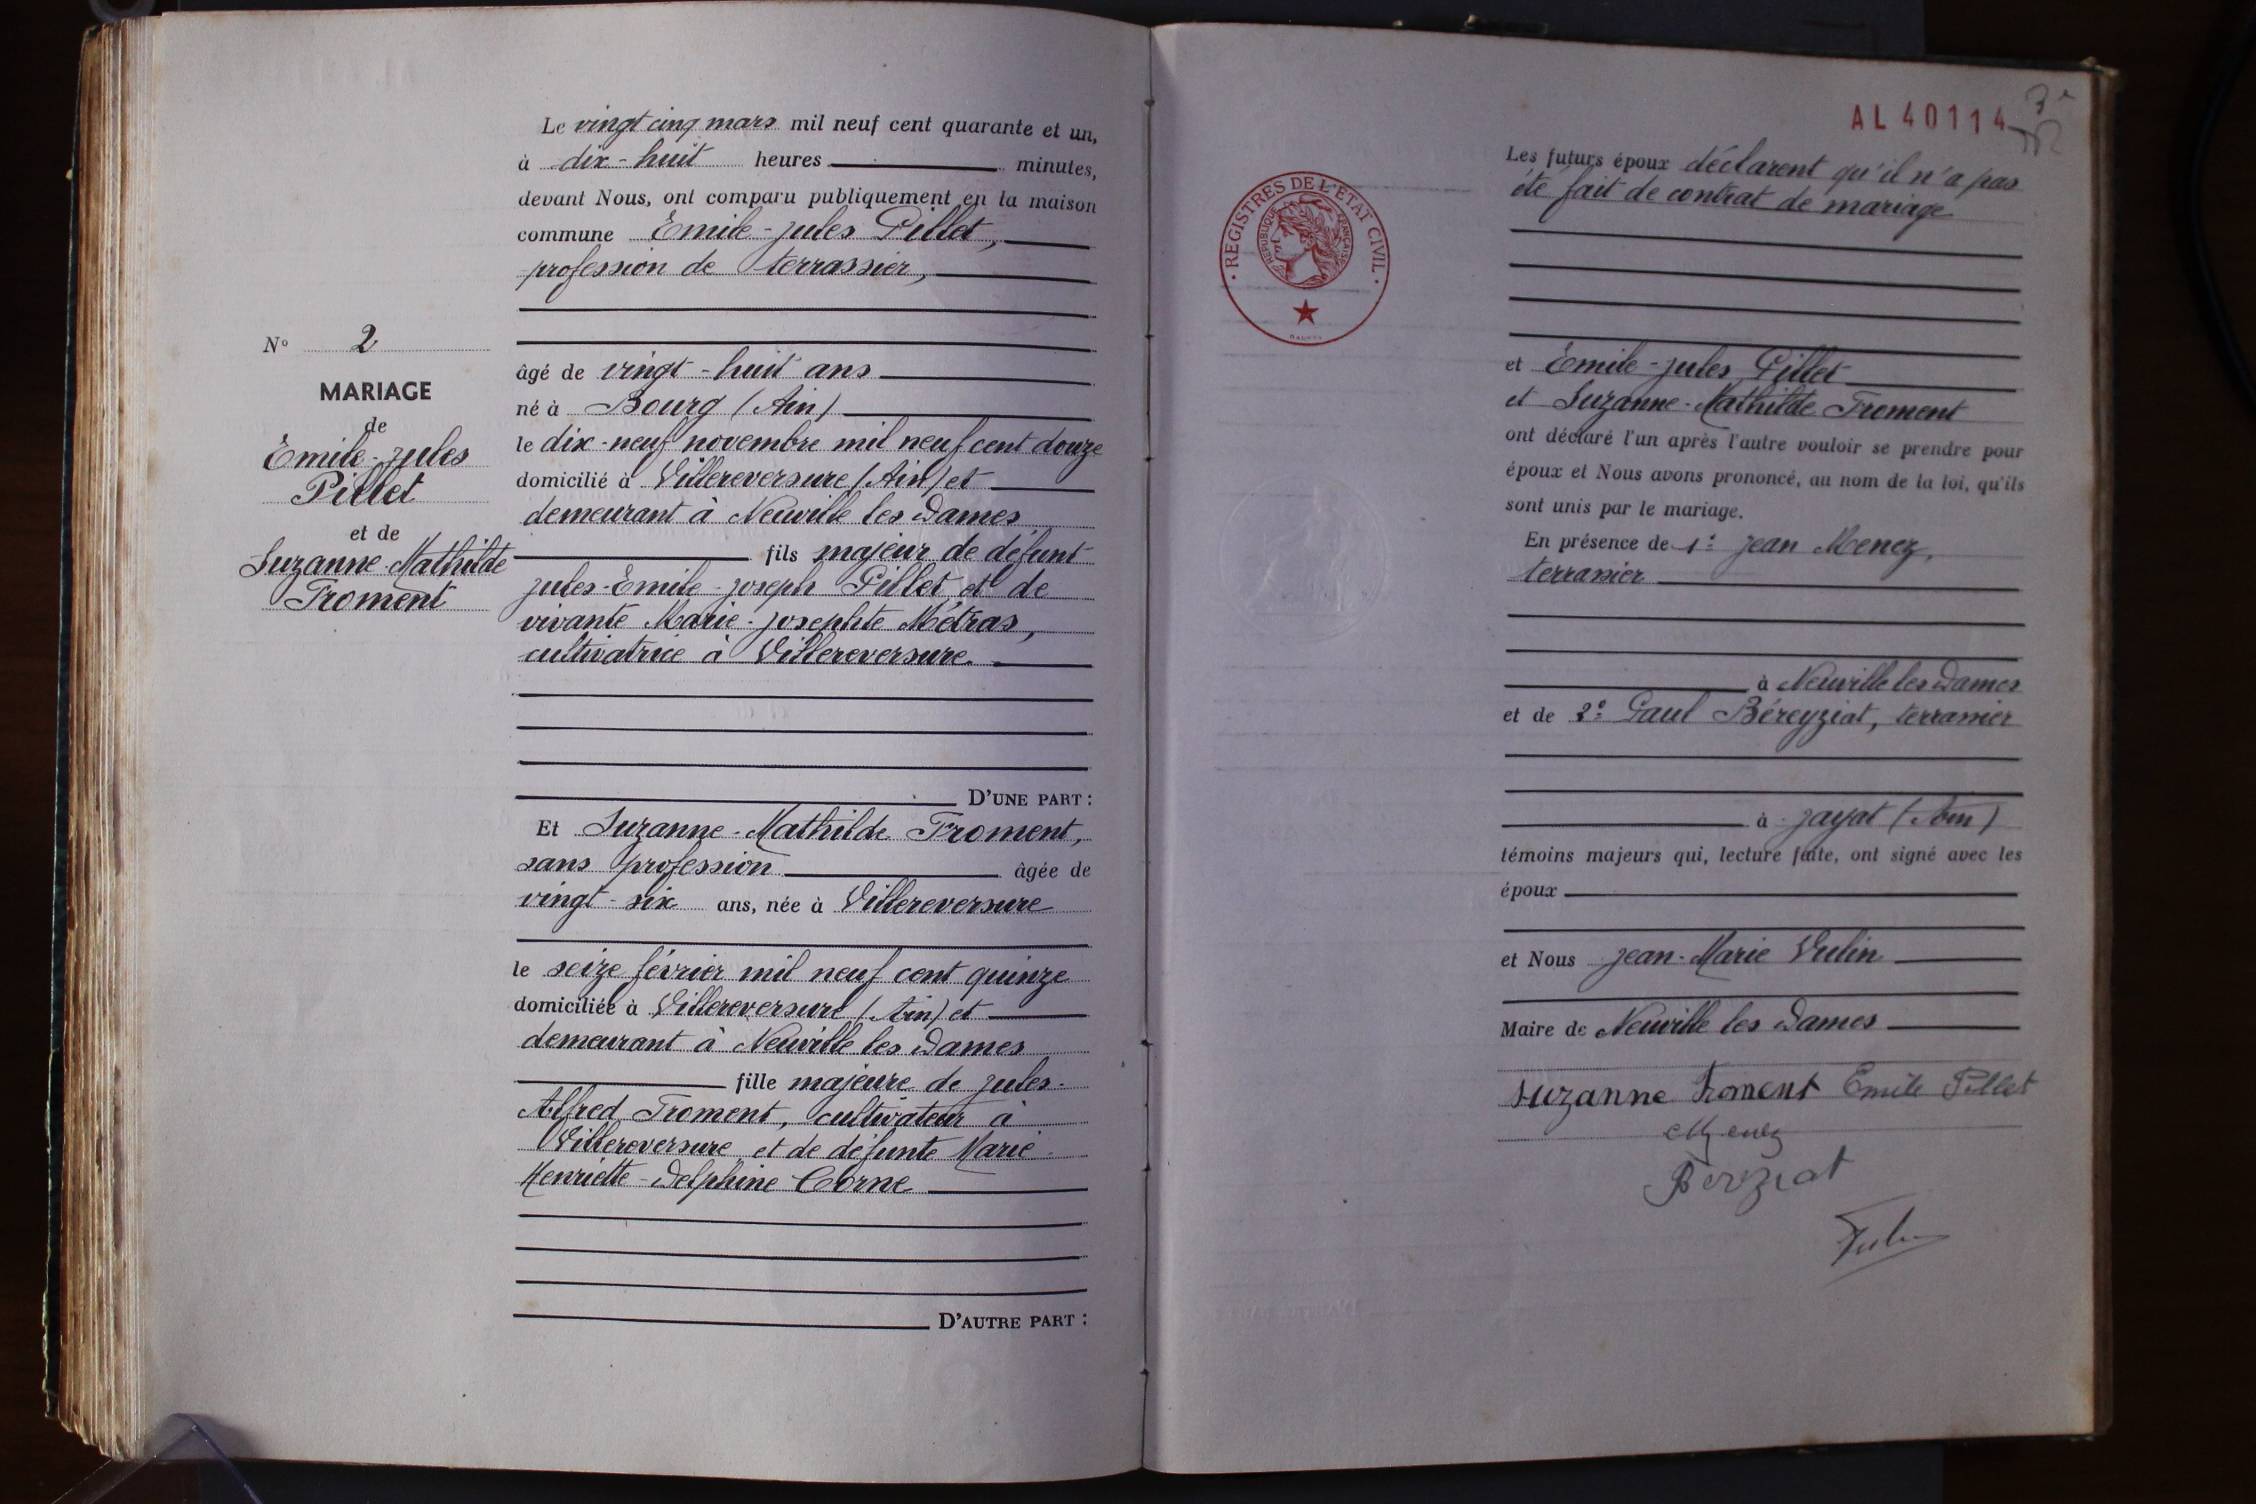 N° 2
MARIAGE
de
Emile-Jules
Pillet
et de
Suzanne-Mathilde
Froment
Le vingt cinq mars mil neuf cent quarante et un,
à dix-huit heures minutes,
devant Nous, ont comparu publiquement en la maison
commune Emile-Jules Pillet,
profession de terrassier,
âgé de vingt-huit ans
né à Bourg (Ain)
le dix-neuf novembre mil neuf cent douze
domicilié à Villereversure (Ain) et
demeurant à Neuville les Dames
fils majeur de défunt
Jules-Emile-Joseph Pillet et de
vivante Marie-Josephte Métras,
cultivatrice à Villereversure.
D'UNE PART :
Et Suzanne-Mathilde Froment,
sans profession âgée de
vingt-six ans, née à Villereversure
le seize février mil neuf cent quinze
domiciliée à Villereversure (Ain) et
demeurant à Neuville les Dames
fille majeure de Jules-
Alfred Froment, cultivateur à
Villereversure et de défunte Marie-
Henriette-Delphine Corne
D'AUTRE PART :
AL 40114
REGISTRES DE L'ETAT CIVIL
REPUBLIQUE FRANÇAISE
Les futurs époux déclarent qu'il n'a pas
été fait de contrat de mariage
et Emile-Jules Pillet
et Suzanne-Mathilde Froment
ont déclaré l'un après l'autre vouloir se prendre pour
époux et Nous avons prononcé, au nom de la loi, qu'ils
sont unis par le mariage.
En présence de 1° Jean Menez,
terrassier
à Neuville les Dames
et de 2° Paul Béreyziat, terrassier
à Jayat (Ain)
témoins majeurs qui, lecture faite, ont signé avec les
époux
et Nous Jean-Marie Vulin
Maire de Neuville les Dames
Suzanne Froment Emile Pillet
Menez
Berziat